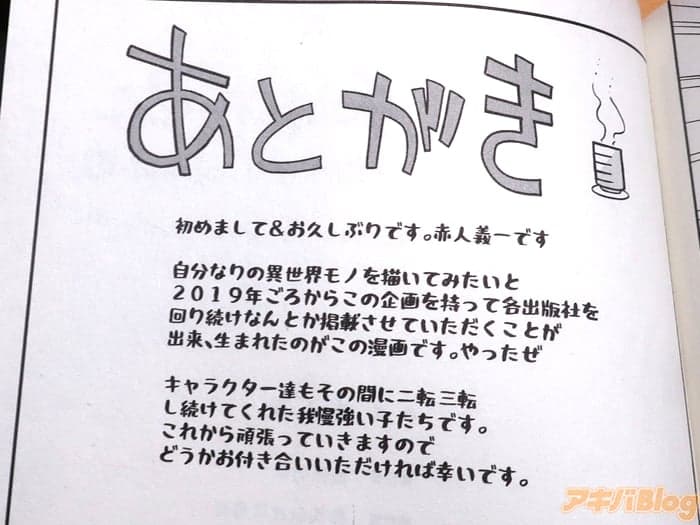 あとがき
初めまして&お久しぶりです。赤人義一です
自分なりの異世界モノを描いてみたいと
2019年ごろからこの企画を持って各出版社を
回り続けなんとか掲載させていただくことが
出来、生まれたのがこの漫画です。やったぜ
キャラクター達もその間に二転三転
し続けてくれた我慢強い子たちです。
これから頑張っていきますので
どうかお付き合いいただければ幸いです。
アキバBlog